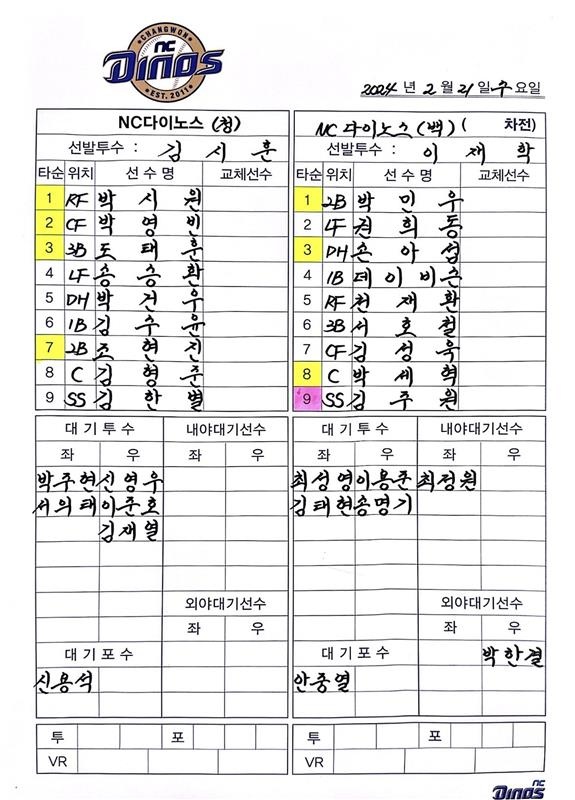 CHANGWON
NC
DINOS
EST. 2011
2024 년 2 월 21 일 수 요일
NC다이노스 (청)
선발투수 : 김 시 훈
타순 위치 선 수 명 교체선수
1 RF 박 시 원
2 CF 박 영 빈
3 3B 도 태 훈
4 LF 송 승 환
5 DH 박 건 우
6 1B 김 수 윤
7 2B 조 현 진
8 C 김 형 준
9 SS 김 한 별
대 기 투 수 내야대기선수
좌 우 좌 우
박주현 신영우
서의태 이준호
김재열
외야대기선수
좌 우
대 기 포 수
신용석
투 포
VR
NC 다이노스 (백) ( 차전)
선발투수 : 이 재 학
타순 위치 선 수 명 교체선수
1 2B 박 민 우
2 LF 권 희 동
3 DH 손 아 섭
4 1B 데 이 비 슨
5 RF 천 재 환
6 3B 서 호 철
7 CF 김 성 욱
8 C 박 세 혁
9 SS 김 주 원
대 기 투 수 내야대기선수
좌 우 좌 우
최성영 이용준 최정원
김태현 송명기
외야대기선수
좌 우
대 기 포 수 박한결
안중열
투 포
VR
NC
DINOS